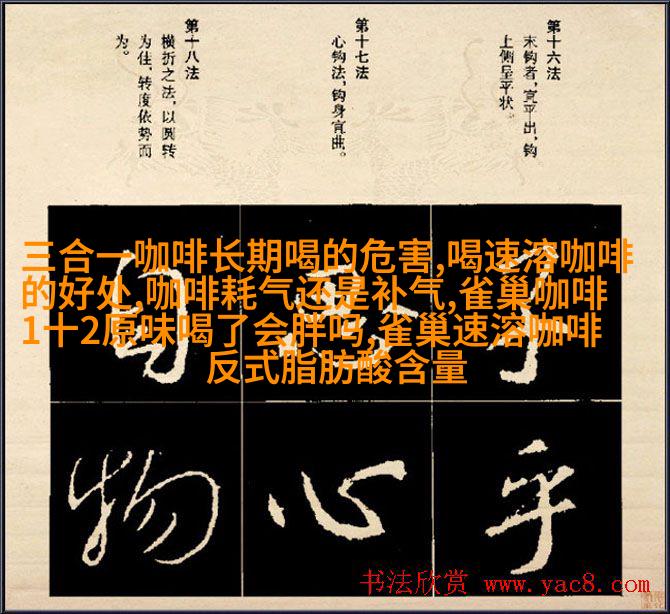 第十六法
末钩者,宜平出,钩
上侧呈平状。
第十七法
心钩法,钩身宜曲。
第十八法
横折之法,以圆转
为佳、转度依势而
为。
三合一咖啡长期喝的危害,喝速溶咖啡
的好处,咖啡耗气还是补气,雀巢咖啡
1十2原味喝了会胖吗,雀巢速溶咖啡
反式脂肪酸含量
乎
心
自
物
书法欣赏 www.yac8.com